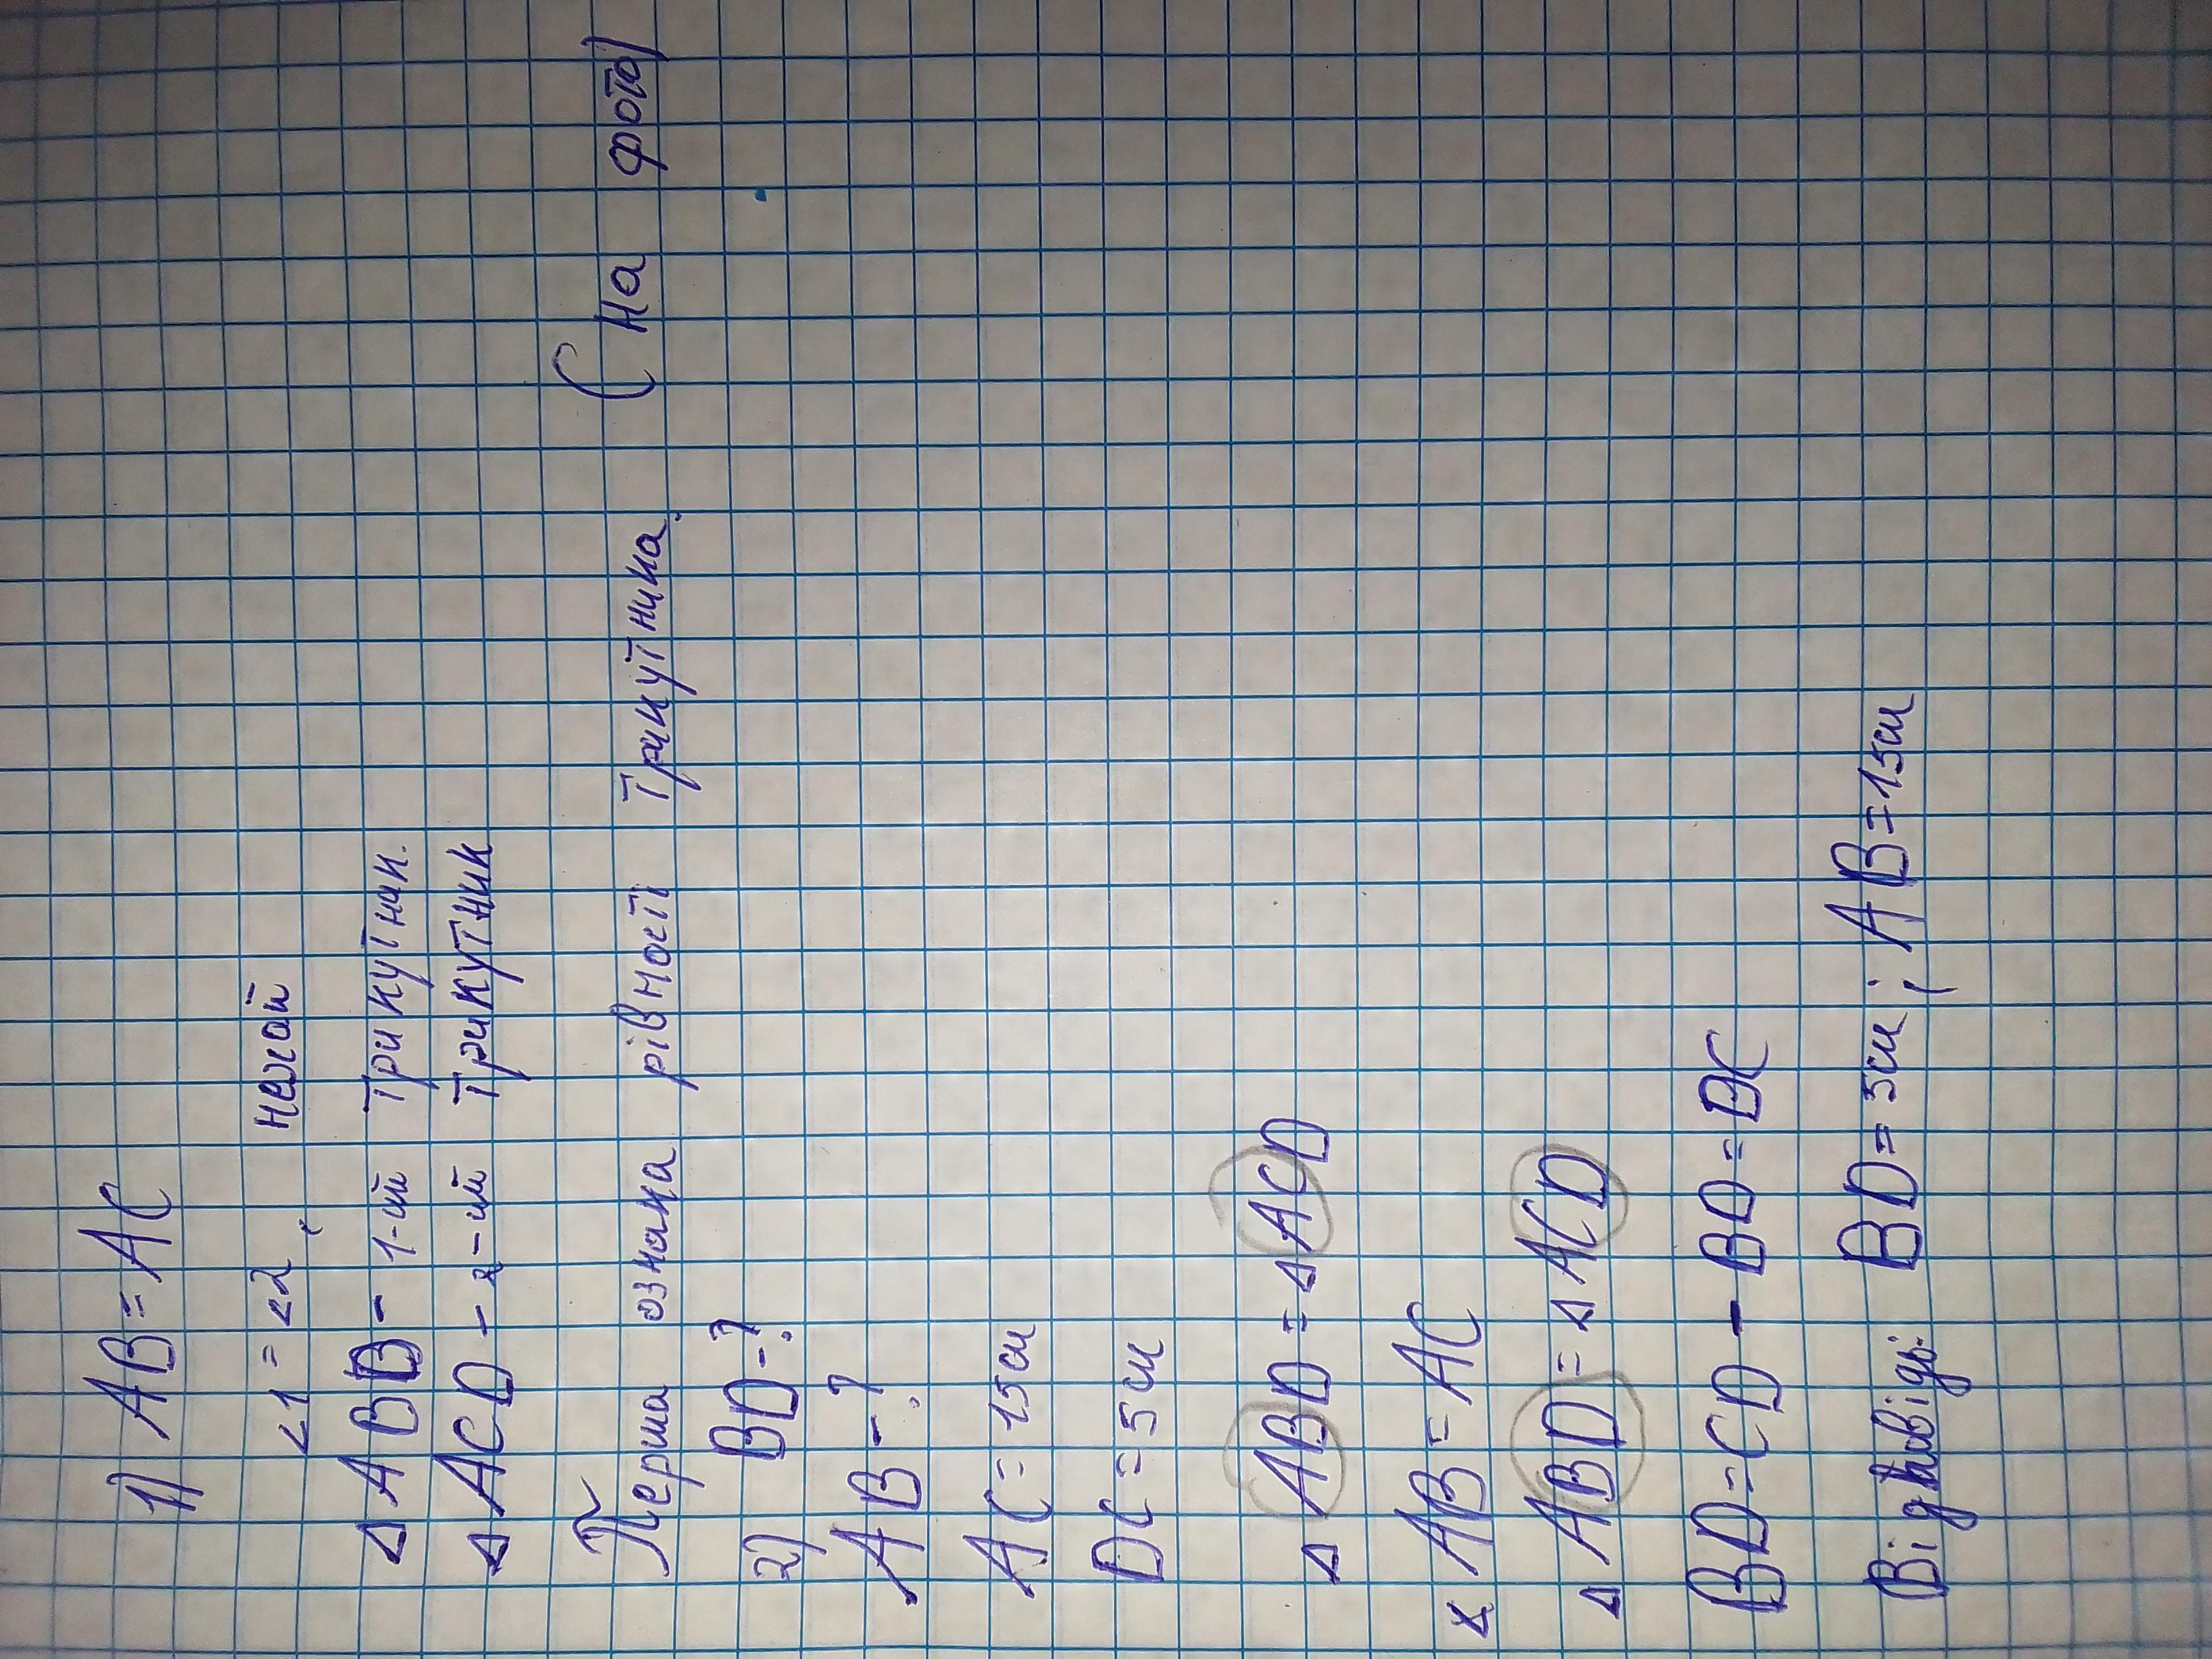 1) AB = AC
<1 = <2, нехай
△ ABD - 1-ий трикутник.
△ ACD - 2-ий трикутник
Перша ознака рівності трикутника. (на фото)
2) BD - ?
AB - ?
AC = 15см
DC = 5см
△ ABD = △ ACD
AB = AC
△ ABD = △ ACD
BD = CD - BD = DC
Відповідь: BD = 5см; AB = 15см